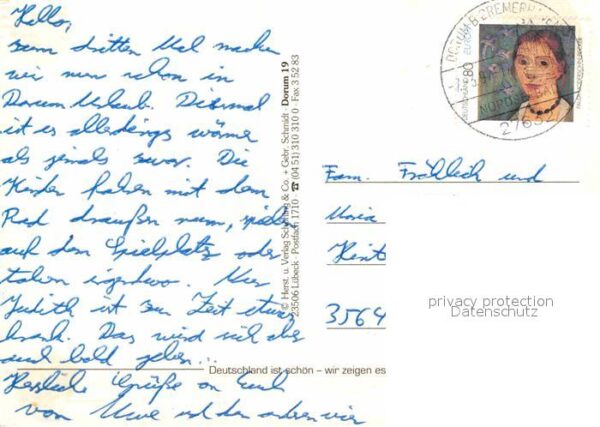 Hallo,
zum dritten Mal machen
wir nun schon in
Dorum Urlaub. Diesmal
ist es allerdings wärmer
als jemals zuvor. Die
Kinder fahren mit dem
Rad draußen rum, spielen
auf dem Spielplatz oder
toben irgendwo. Nur
Judith ist zur Zeit etwas
krank. Das wird sich aber
auch bald geben...
Herzliche Grüße an Euch
von Uwe und den anderen vier
© Herst. u. Verlag Schöning & Co. + Gebr. Schmidt Dorum 19
23506 Lübeck · Postfach 1710 · ☎ (04 51) 310 310 0 · Fax 3 52 83
Deutschland ist schön – wir zeigen es
DEUTSCHLAND 80
EUROPA
NORDSEE
27632
Fam. Fröhlich und
Maria
3564
privacy protection
Datenschutz